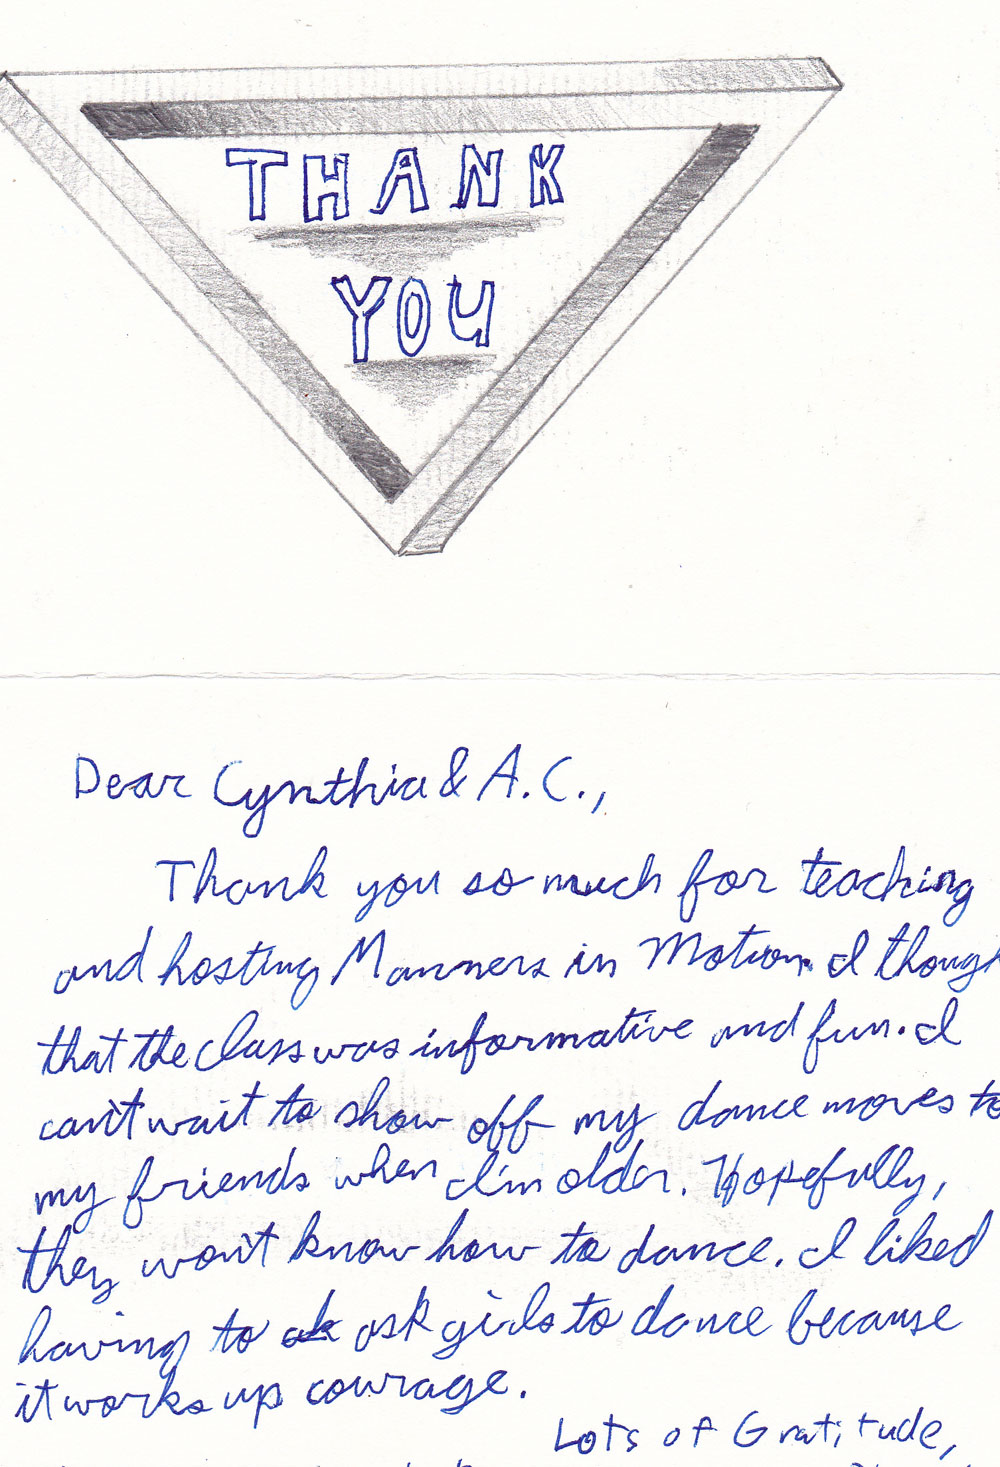 THANK
YOU
Dear Cynthia & A.C.,
Thank you so much for teaching
and hosting Manners in Motion. I though
that the class was informative and fun. I
can't wait to show off my dance moves to
my friends when I'm older. Hopefully,
they won't know how to dance. I liked
having to ask girls to dance because
it works up courage.
Lots of Gratitude,